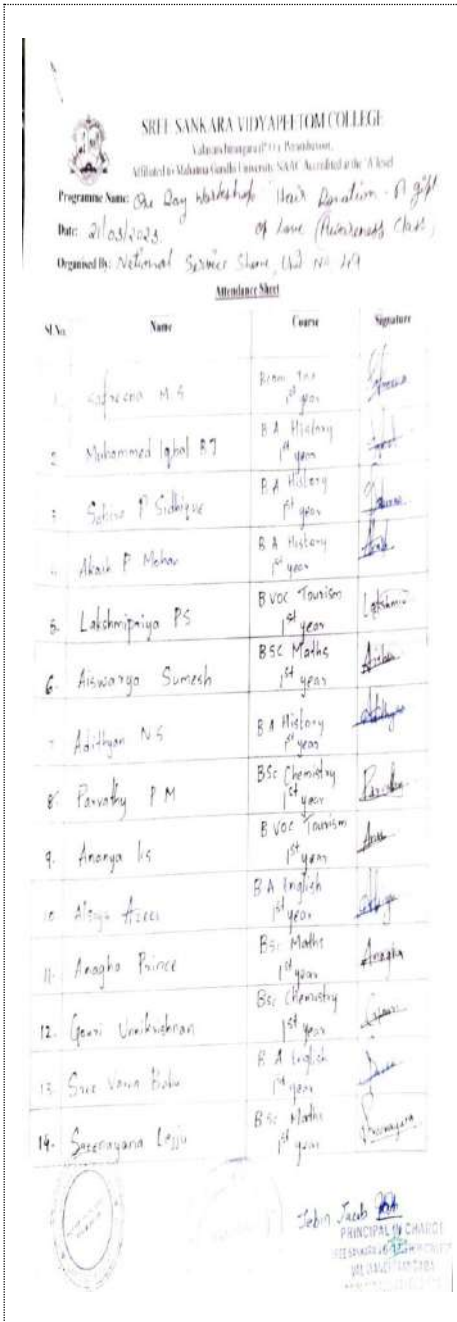 SREE SANKARA VIDYAPEETOM COLLEGE
Valayanchirangara (P.O.), Perumbavoor,
Affiliated to Mahatma Gandhi University, NAAC Accredited at the 'A' level
Programme Name: One Day Workshop 'Hair Donation - A gift
of Love (Awareness Class)
Date: 21/03/2023
Organised By: National Service Sheme, Unit No
Attendance Sheet
Sl.No. Name Course Signature
M S Bcom Tax
1st year
2 Muhammed Iqbal B A History
1st year
3 P Sidhique B A History
1st year
Akash P Mohan B A History
1st year
5. Lakshmipriya PS B VOC Tourism Lakshmi
1st year
6. Aiswarya Sumesh BSC Maths
1st year
7 Adithyan N S B A History
1st year
8. Parvathy P M BSc Chemistry
1st year
9. Ananya B VOC Tourism
1st year
10 B A English
1st year
11. Anagha Prince BSc Maths Anagha
1st year
12. Gouri Unnikrishnan BSc Chemistry
1st year
13 Sree Babu B A English
1st year
14. BSc Maths
1st year
Jebin Jacob
PRINCIPAL IN CHARGE